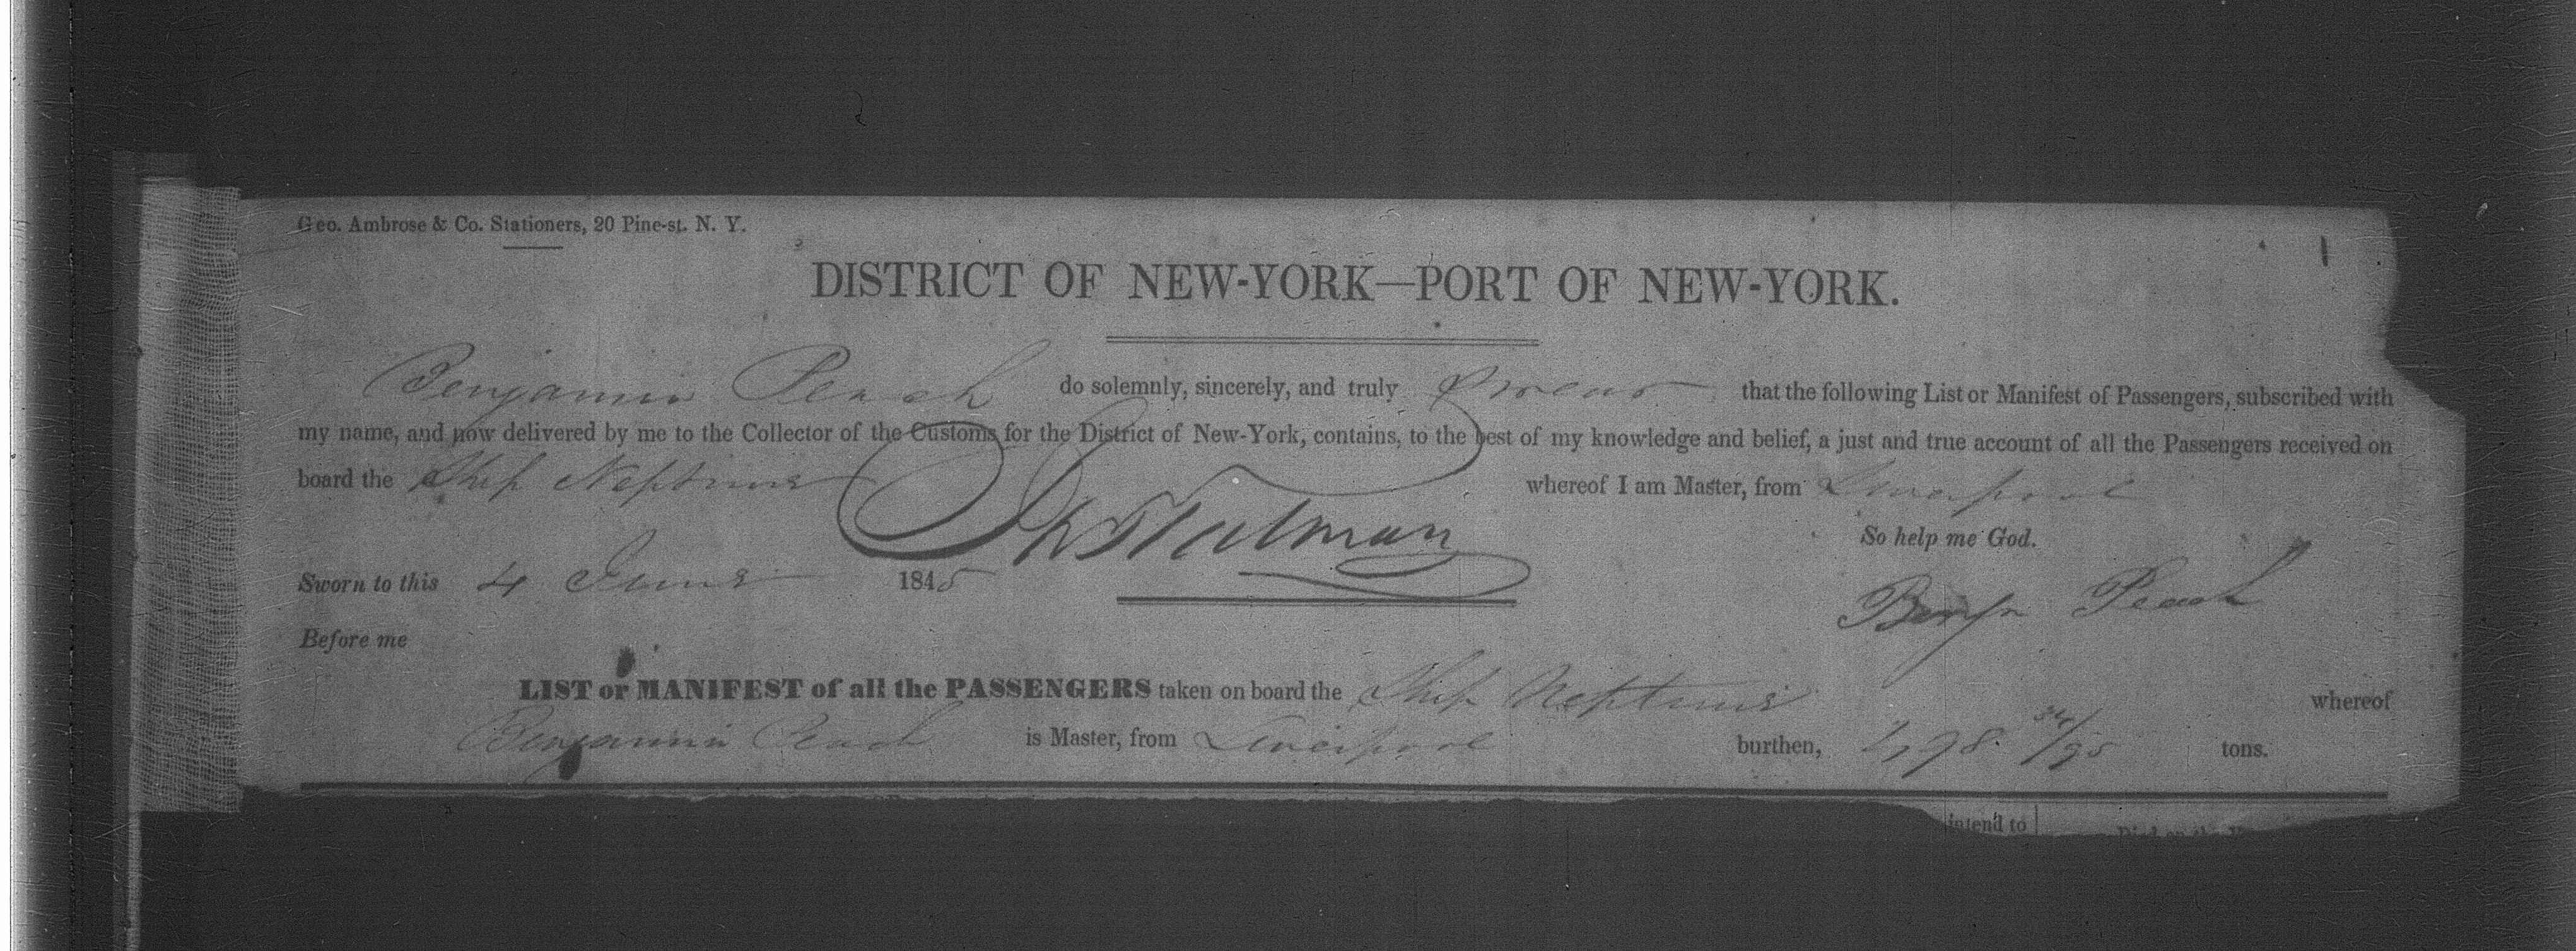 Geo. Ambrose & Co. Stationers, 20 Pine-st. N. Y.
DISTRICT OF NEW-YORK—PORT OF NEW-YORK.
Benjamin Peach do solemnly, sincerely, and truly swear that the following List or Manifest of Passengers, subscribed with
my name, and now delivered by me to the Collector of the Customs for the District of New-York, contains, to the best of my knowledge and belief, a just and true account of all the Passengers received on
board the Ship Neptune whereof I am Master, from Liverpool
So help me God.
Sworn to this 4 June 1845
Benjn Peach
Before me
LIST or MANIFEST of all the PASSENGERS taken on board the Ship Neptune whereof
Benjamin Peach is Master, from Liverpool burthen, tons.
intend to